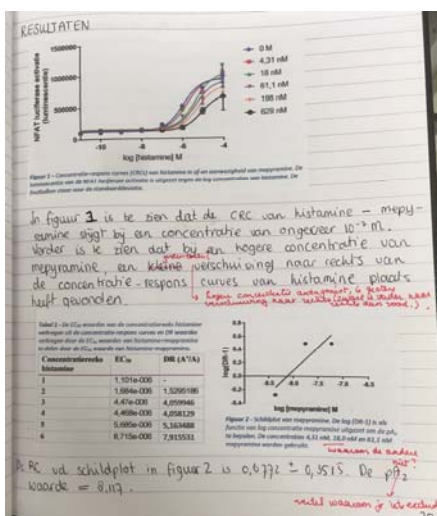 RESULTATEN
1500000
1000000
500000
0
NFAT luciferase activatie
(luminescentie)
-10
-8
-6
-4
log [histamine] M
0 M
4,31 nM
18 nM
61,1 nM
198 nM
629 nM
Figuur 1 – Concentratie-respons curves (CRCs) van histamine in af- en aanwezigheid van mepyramine. De
luminescentie van de NFAT luciferase activatie is uitgezet tegen de log concentraties van histamine. De
foutbalken staan voor de standaarddeviatie.
In figuur 1 is te zien dat de CRC van histamine – mepy-
ramine stijgt bij een concentratie van ongeveer 10⁻⁷ M.
Verder is te zien dat bij een hogere concentratie van
mepyramine, een kleine verschuiving naar rechts van
de concentratie-respons curves van histamine plaats
heeft gevonden.
hogere concentratie antagonist is
verschuiving naar rechts
Tabel 1 – De EC₅₀ waarden van de concentratiereeks histamine
verkregen uit de concentratie-respons curves en DR waarden
verkregen door de EC₅₀ waarden van histamine-mepyramine
te delen door de EC₅₀ waarde van histamine-mepyramine.
Concentratiereeks histamine EC₅₀ DR (A'/A)
1 1,101e-006 -
2 1,684e-006 1,5295186
3 4,47e-006 4,059946
4 4,468e-006 4,058129
5 5,685e-006 5,163488
6 8,715e-006 7,915531
log(DR-1)
0.8
0.6
0.4
0.2
-0.2
-0.4
-9.0
-8.5
-8.0
-7.5
-7.0
-6.5
log [mepyramine] M
Figuur 2 – Schildplot van mepyramine. De log (DR-1) is als
functie van log concentratie mepyramine uitgezet om de pA₂
te bepalen. De concentraties 4,31 nM, 18,0 nM en 61,1 nM
mepyramine worden gebruikt.
waarom de andere
niet?
De RC vd schildplot in figuur 2 is 0,6772 ± 0,3515. De pA₂
waarde = 8,117.
vertel waarom je